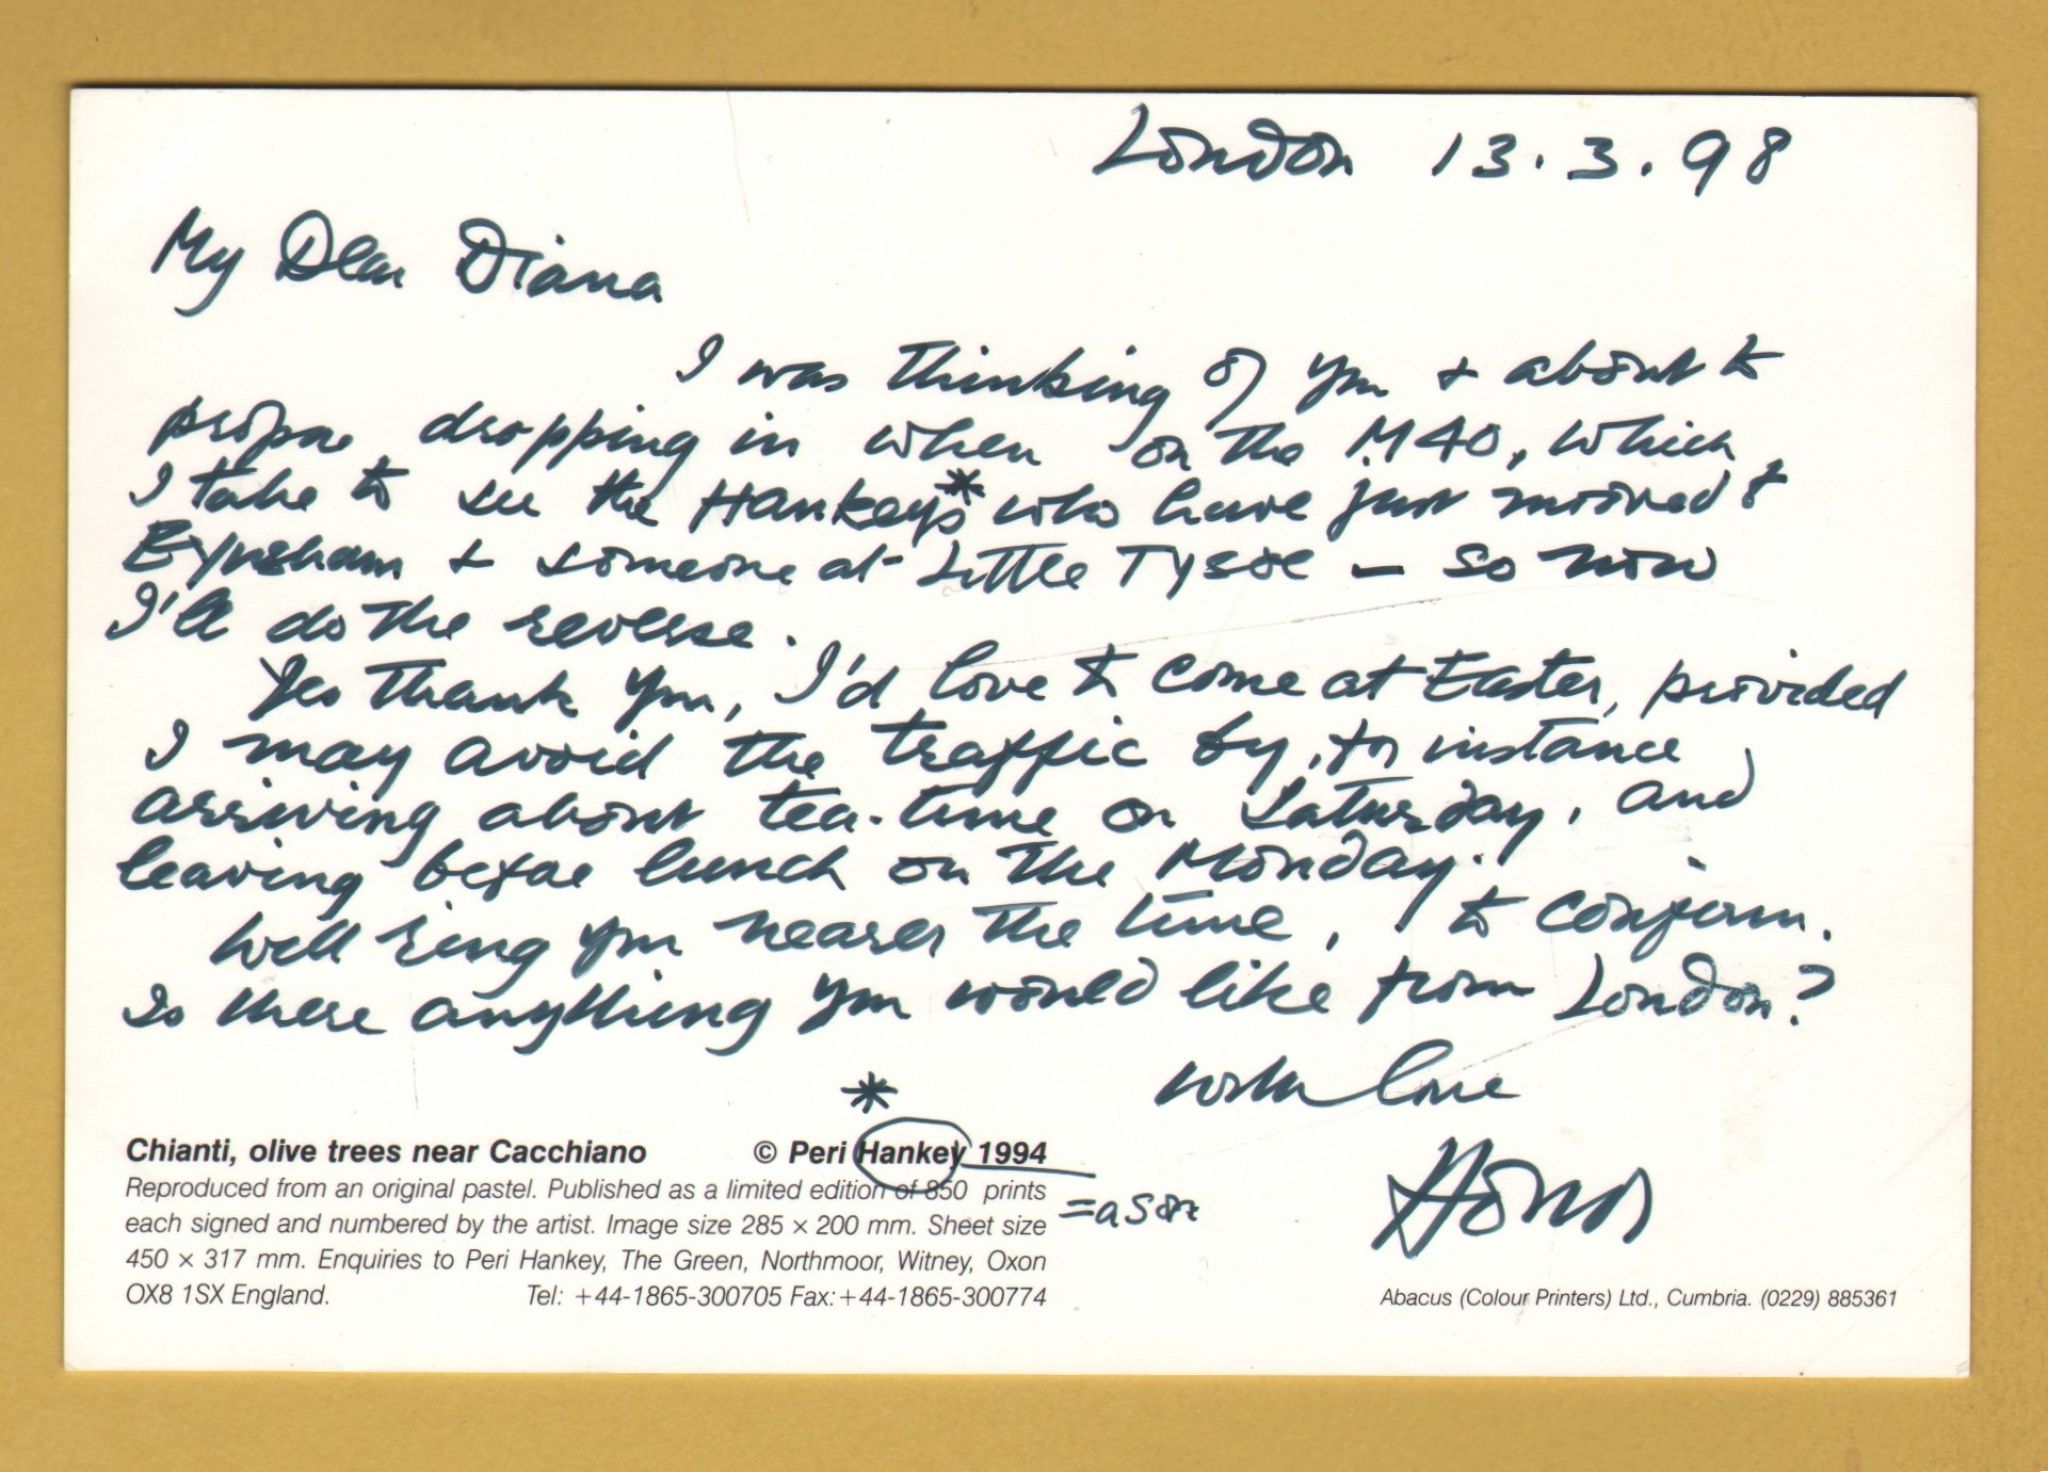 London 13.3.98
My Dear Diana
I was thinking of you & about to
propose dropping in when on the M40, which
I take to see the Hankeys* who have just moved to
Eynsham & someone at Little Tysoe – so now
I'll do the reverse.
Yes thank you, I'd love to come at Easter, provided
I may avoid the traffic by, for instance,
arriving about tea-time on Saturday, and
leaving before lunch on the Monday.
Will ring you nearer the time, to confirm.
Is there anything you would like from London?
with love
*
Chianti, olive trees near Cacchiano © Peri Hankey 1994
Reproduced from an original pastel. Published as a limited edition of 850 prints
each signed and numbered by the artist. Image size 285 × 200 mm. Sheet size
= a son
450 × 317 mm. Enquiries to Peri Hankey, The Green, Northmoor, Witney, Oxon
OX8 1SX England. Tel: +44-1865-300705 Fax:+44-1865-300774
Abacus (Colour Printers) Ltd., Cumbria. (0229) 885361